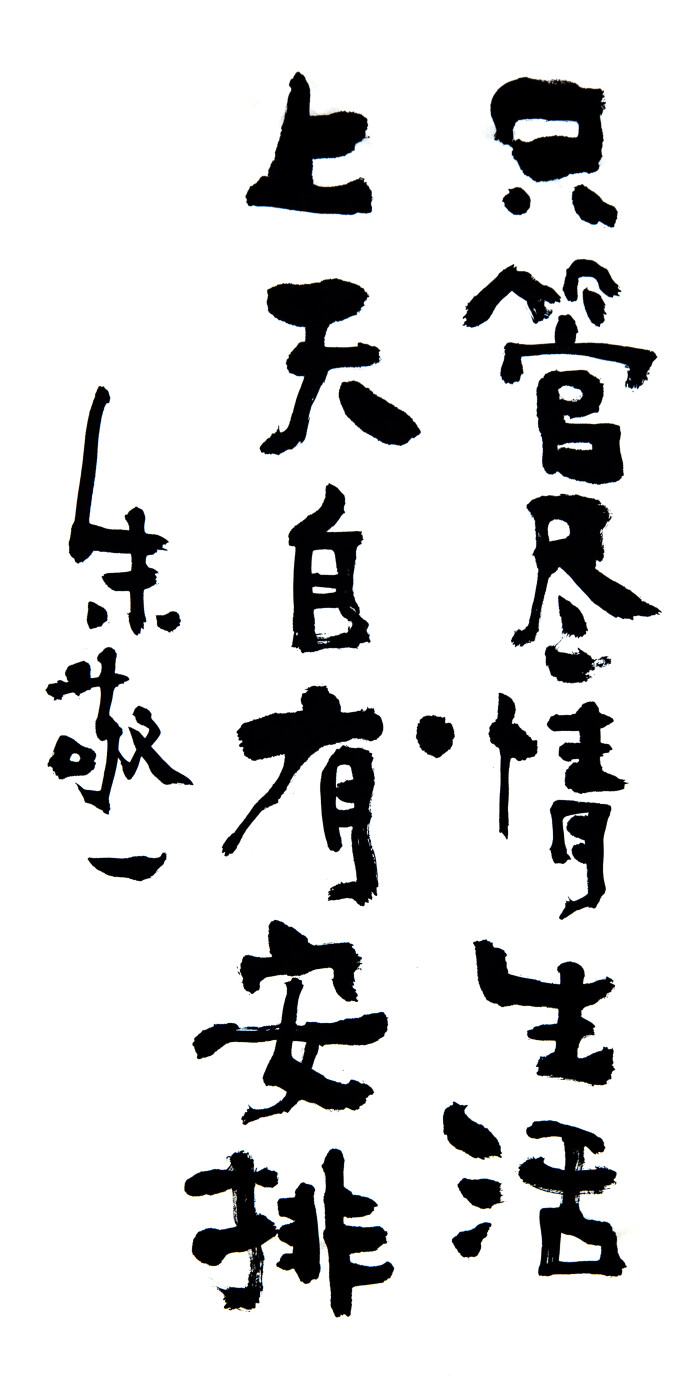 只管尽情生活
上天自有安排
朱敬一